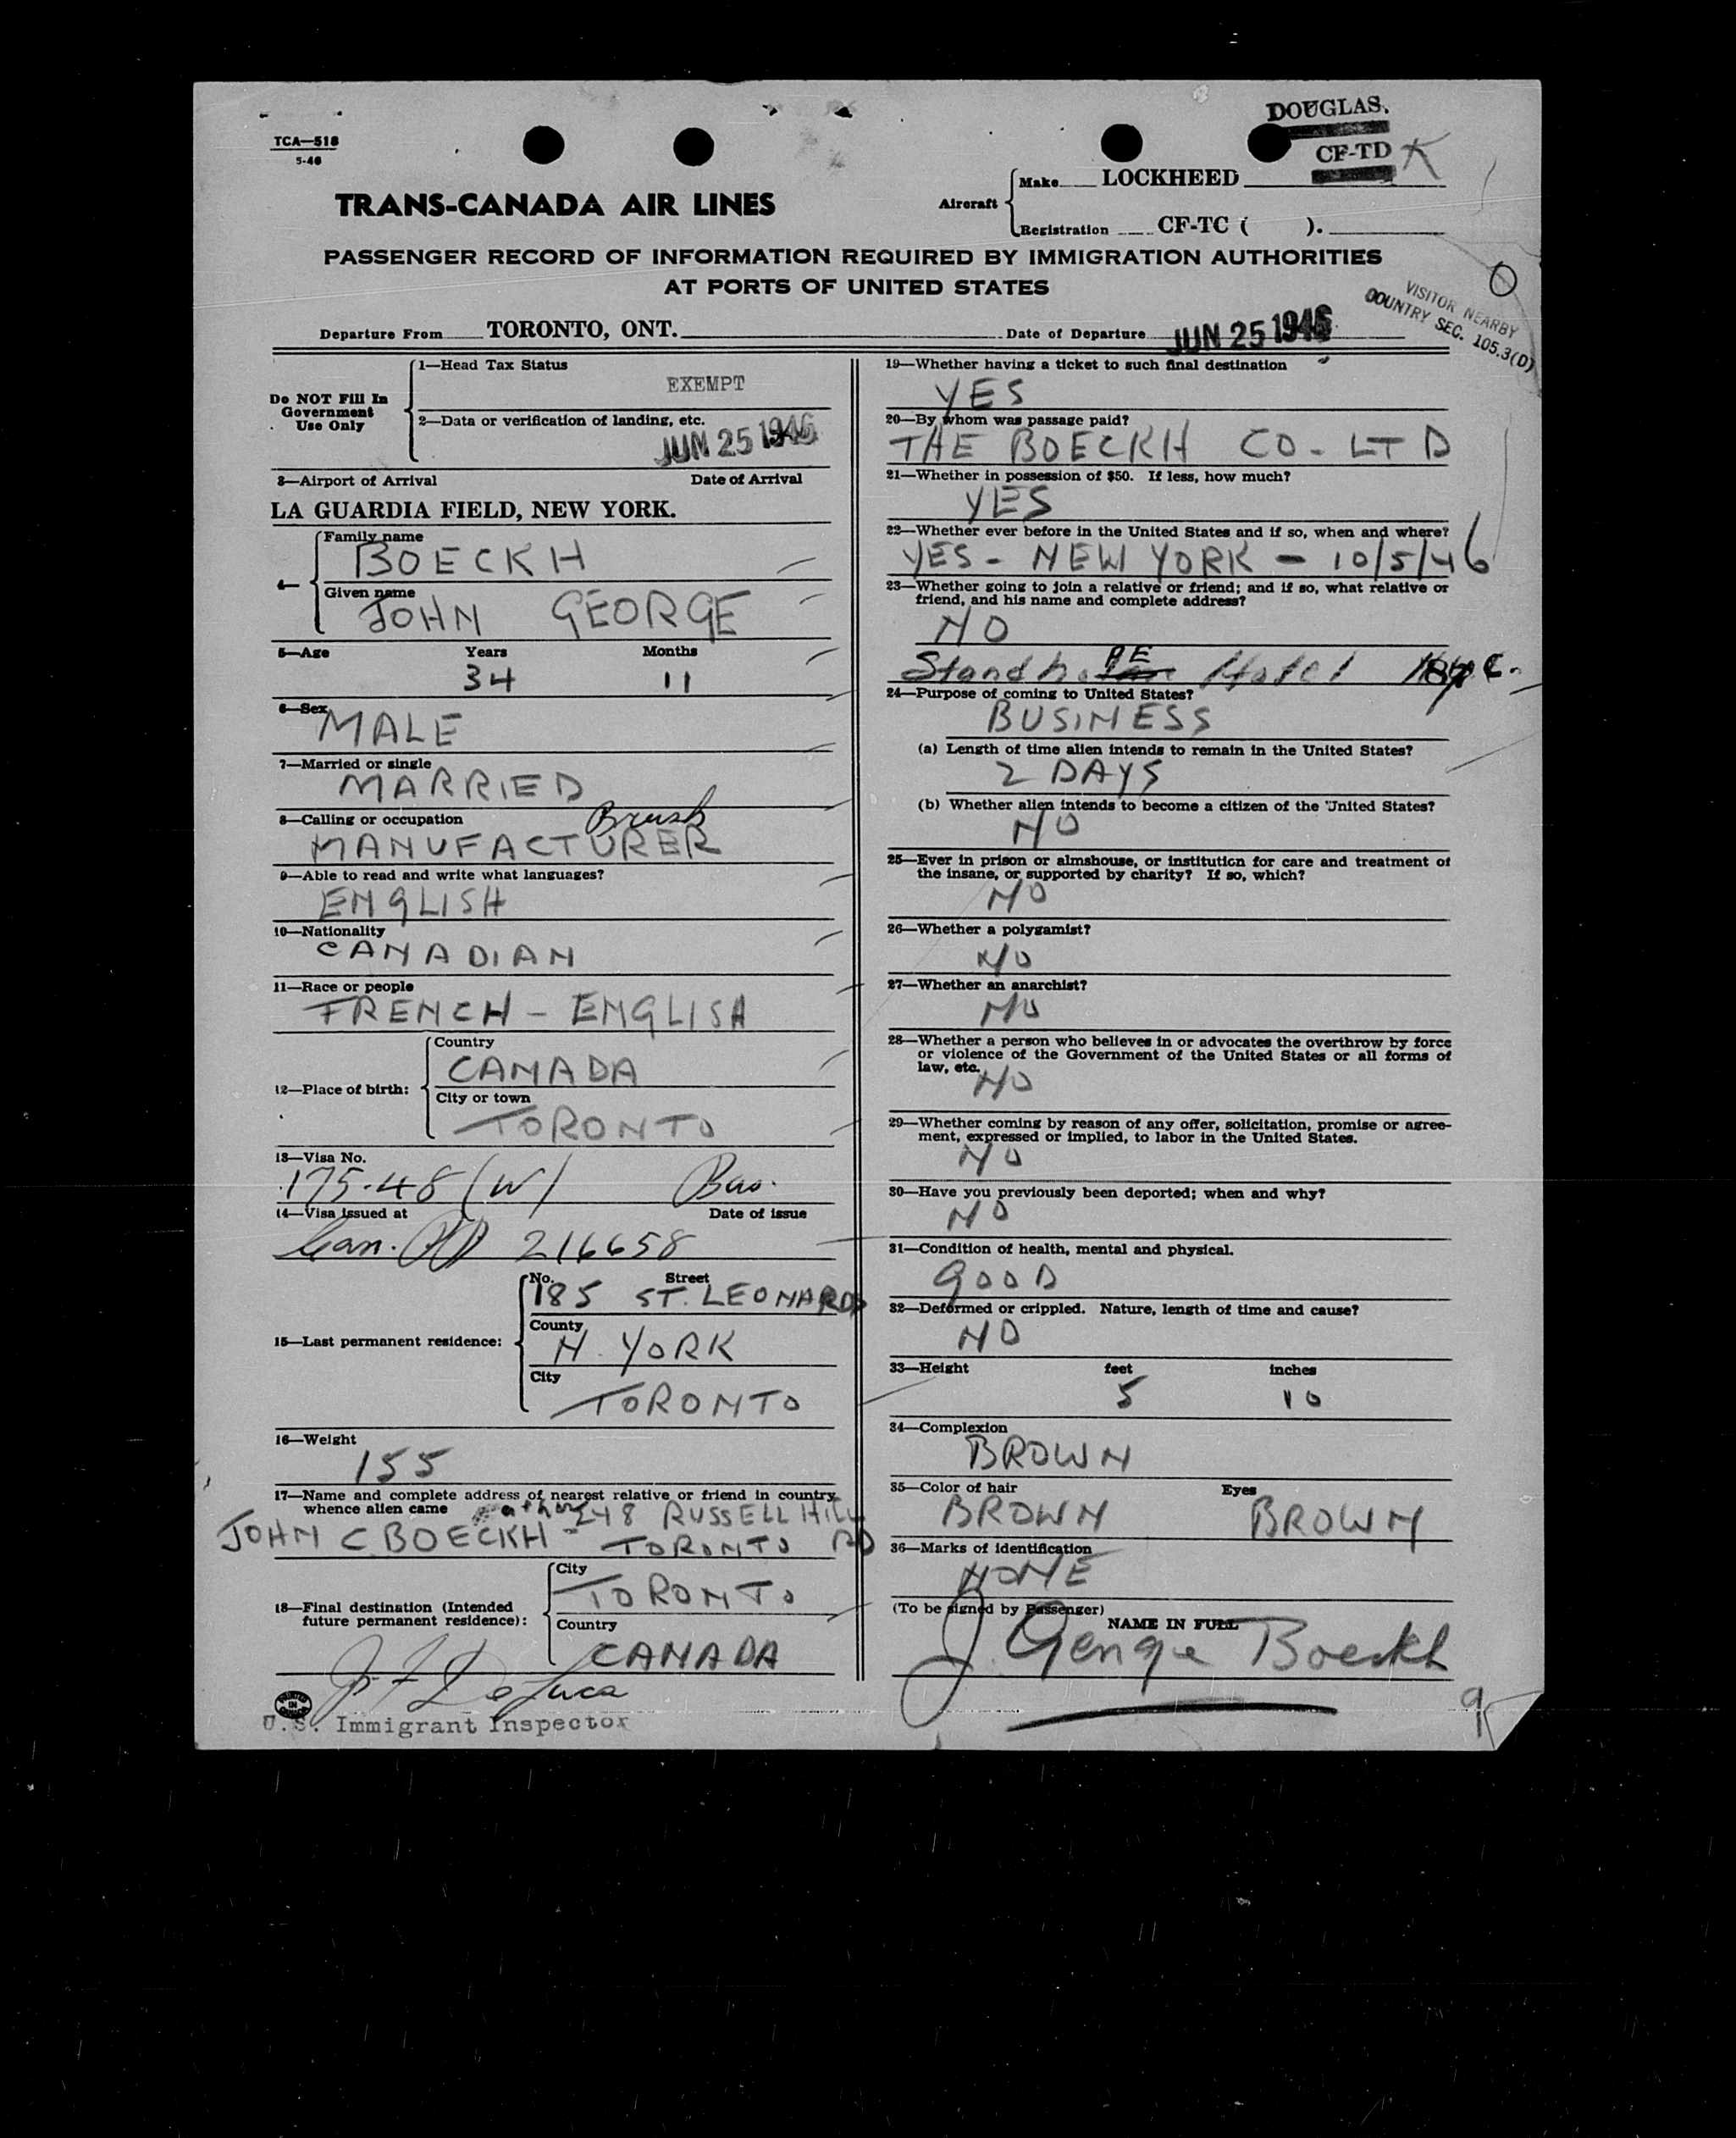 TCA—518
5-46
DOUGLAS.
CF-TD K
TRANS-CANADA AIR LINES
Aircraft
Make LOCKHEED
Registration CF-TC ( ).
PASSENGER RECORD OF INFORMATION REQUIRED BY IMMIGRATION AUTHORITIES
AT PORTS OF UNITED STATES
VISITOR NEARBY
COUNTRY SEC. 105.3(D)
Departure From TORONTO, ONT. Date of Departure JUN 25 1946
Do NOT Fill In
Government
Use Only
1—Head Tax Status
EXEMPT
2—Data or verification of landing, etc.
JUN 25 1946
3—Airport of Arrival Date of Arrival
LA GUARDIA FIELD, NEW YORK.
4—
Family name
BOECKH
Given name
JOHN GEORGE
5—Age Years Months
34 11
6—Sex
MALE
7—Married or single
MARRIED
8—Calling or occupation Brush
MANUFACTURER
9—Able to read and write what languages?
ENGLISH
10—Nationality
CANADIAN
11—Race or people
FRENCH - ENGLISH
12—Place of birth:
Country
CANADA
City or town
TORONTO
13—Visa No.
175-48 (W) Bus.
14—Visa issued at Date of issue
Can. 216658
15—Last permanent residence:
No. Street
185 ST. LEONARDS
County
N. YORK
City
TORONTO
16—Weight
155
17—Name and complete address of nearest relative or friend in country
whence alien came father 248 RUSSELL HILL
JOHN C BOECKH - TORONTO RD
18—Final destination (Intended
future permanent residence):
City
TORONTO
Country
CANADA
PRINTED IN CANADA
U.S. Immigrant Inspector
19—Whether having a ticket to such final destination
YES
20—By whom was passage paid?
THE BOECKH CO. LTD
21—Whether in possession of $50. If less, how much?
YES
22—Whether ever before in the United States and if so, when and where?
YES - NEW YORK - 10/5/46
23—Whether going to join a relative or friend; and if so, what relative or
friend, and his name and complete address?
NO
Hotel
24—Purpose of coming to United States?
BUSINESS
(a) Length of time alien intends to remain in the United States?
2 DAYS
(b) Whether alien intends to become a citizen of the United States?
NO
25—Ever in prison or almshouse, or institution for care and treatment of
the insane, or supported by charity? If so, which?
NO
26—Whether a polygamist?
NO
27—Whether an anarchist?
NO
28—Whether a person who believes in or advocates the overthrow by force
or violence of the Government of the United States or all forms of
law, etc.
NO
29—Whether coming by reason of any offer, solicitation, promise or agree-
ment, expressed or implied, to labor in the United States.
NO
30—Have you previously been deported; when and why?
NO
31—Condition of health, mental and physical.
GOOD
32—Deformed or crippled. Nature, length of time and cause?
NO
33—Height feet inches
5 10
34—Complexion
BROWN
35—Color of hair Eyes
BROWN BROWN
36—Marks of identification
NONE
(To be signed by Passenger)
NAME IN FULL
J. George Boeckh
9